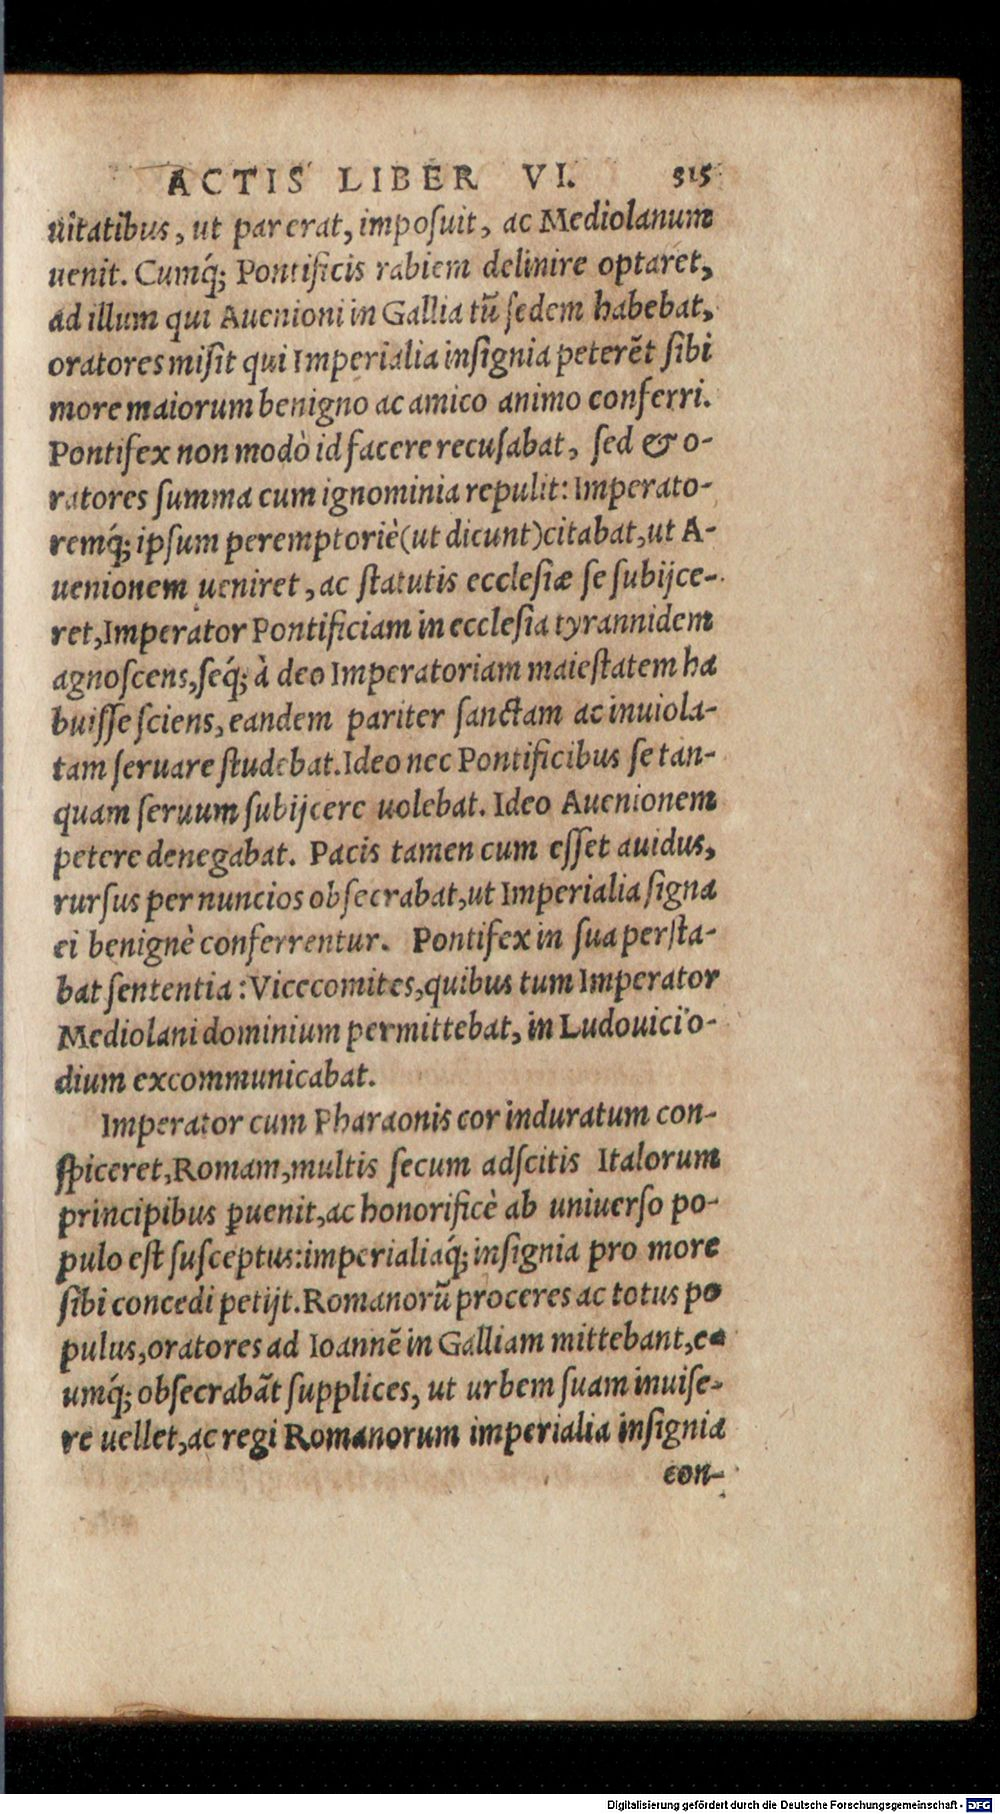 ACTIS LIBER VI. 315
uitatibus, ut par erat, imposuit, ac Mediolanum
uenit. Cumq́; Pontificis rabiem delinire optaret,
ad illum qui Auenioni in Gallia tū sedem habebat,
oratores misit qui Imperialia insignia peterēt sibi
more maiorum benigno ac amico animo conferri.
Pontifex non modò id facere recusabat, sed & o-
ratores summa cum ignominia repulit: Imperato-
remq́; ipsum peremptoriè(ut dicunt)citabat,ut A-
uenionem ueniret, ac statutis ecclesiæ se subijce-
ret,Imperator Pontificiam in ecclesia tyrannidem
agnoscens,seq́; à deo Imperatoriam maiestatem ha
buisse sciens, eandem pariter sanctam ac inuiola-
tam seruare studebat.Ideo nec Pontificibus se tan-
quam seruum subijcere uolebat. Ideo Auenionem
petere denegabat. Pacis tamen cum esset auidus,
rursus per nuncios obsecrabat,ut Imperialia signa
ei benignè conferrentur. Pontifex in sua persta-
bat sententia: Vicecomites,quibus tum Imperator
Mediolani dominium permittebat, in Ludouici o-
dium excommunicabat.
Imperator cum Pharaonis cor induratum con-
spiceret,Romam,multis secum adscitis Italorum
principibus ꝑuenit,ac honorificè ab uniuerso po-
pulo est susceptus:imperialiaq́; insignia pro more
sibi concedi petijt.Romanorū proceres ac totus po
pulus,oratores ad Ioannē in Galliam mittebant,e-
umq́; obsecrabāt supplices, ut urbem suam inuise-
re uellet,ac regi Romanorum imperialia insignia
con-
Digitalisierung gefördert durch die Deutsche Forschungsgemeinschaft - DFG